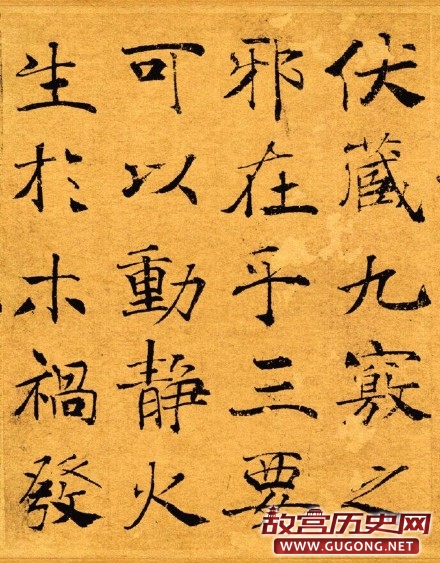 伏藏九竅之
邪在乎三要
可以動靜火
生於木禍發
故宫历史网
WWW.GUGONG.NET